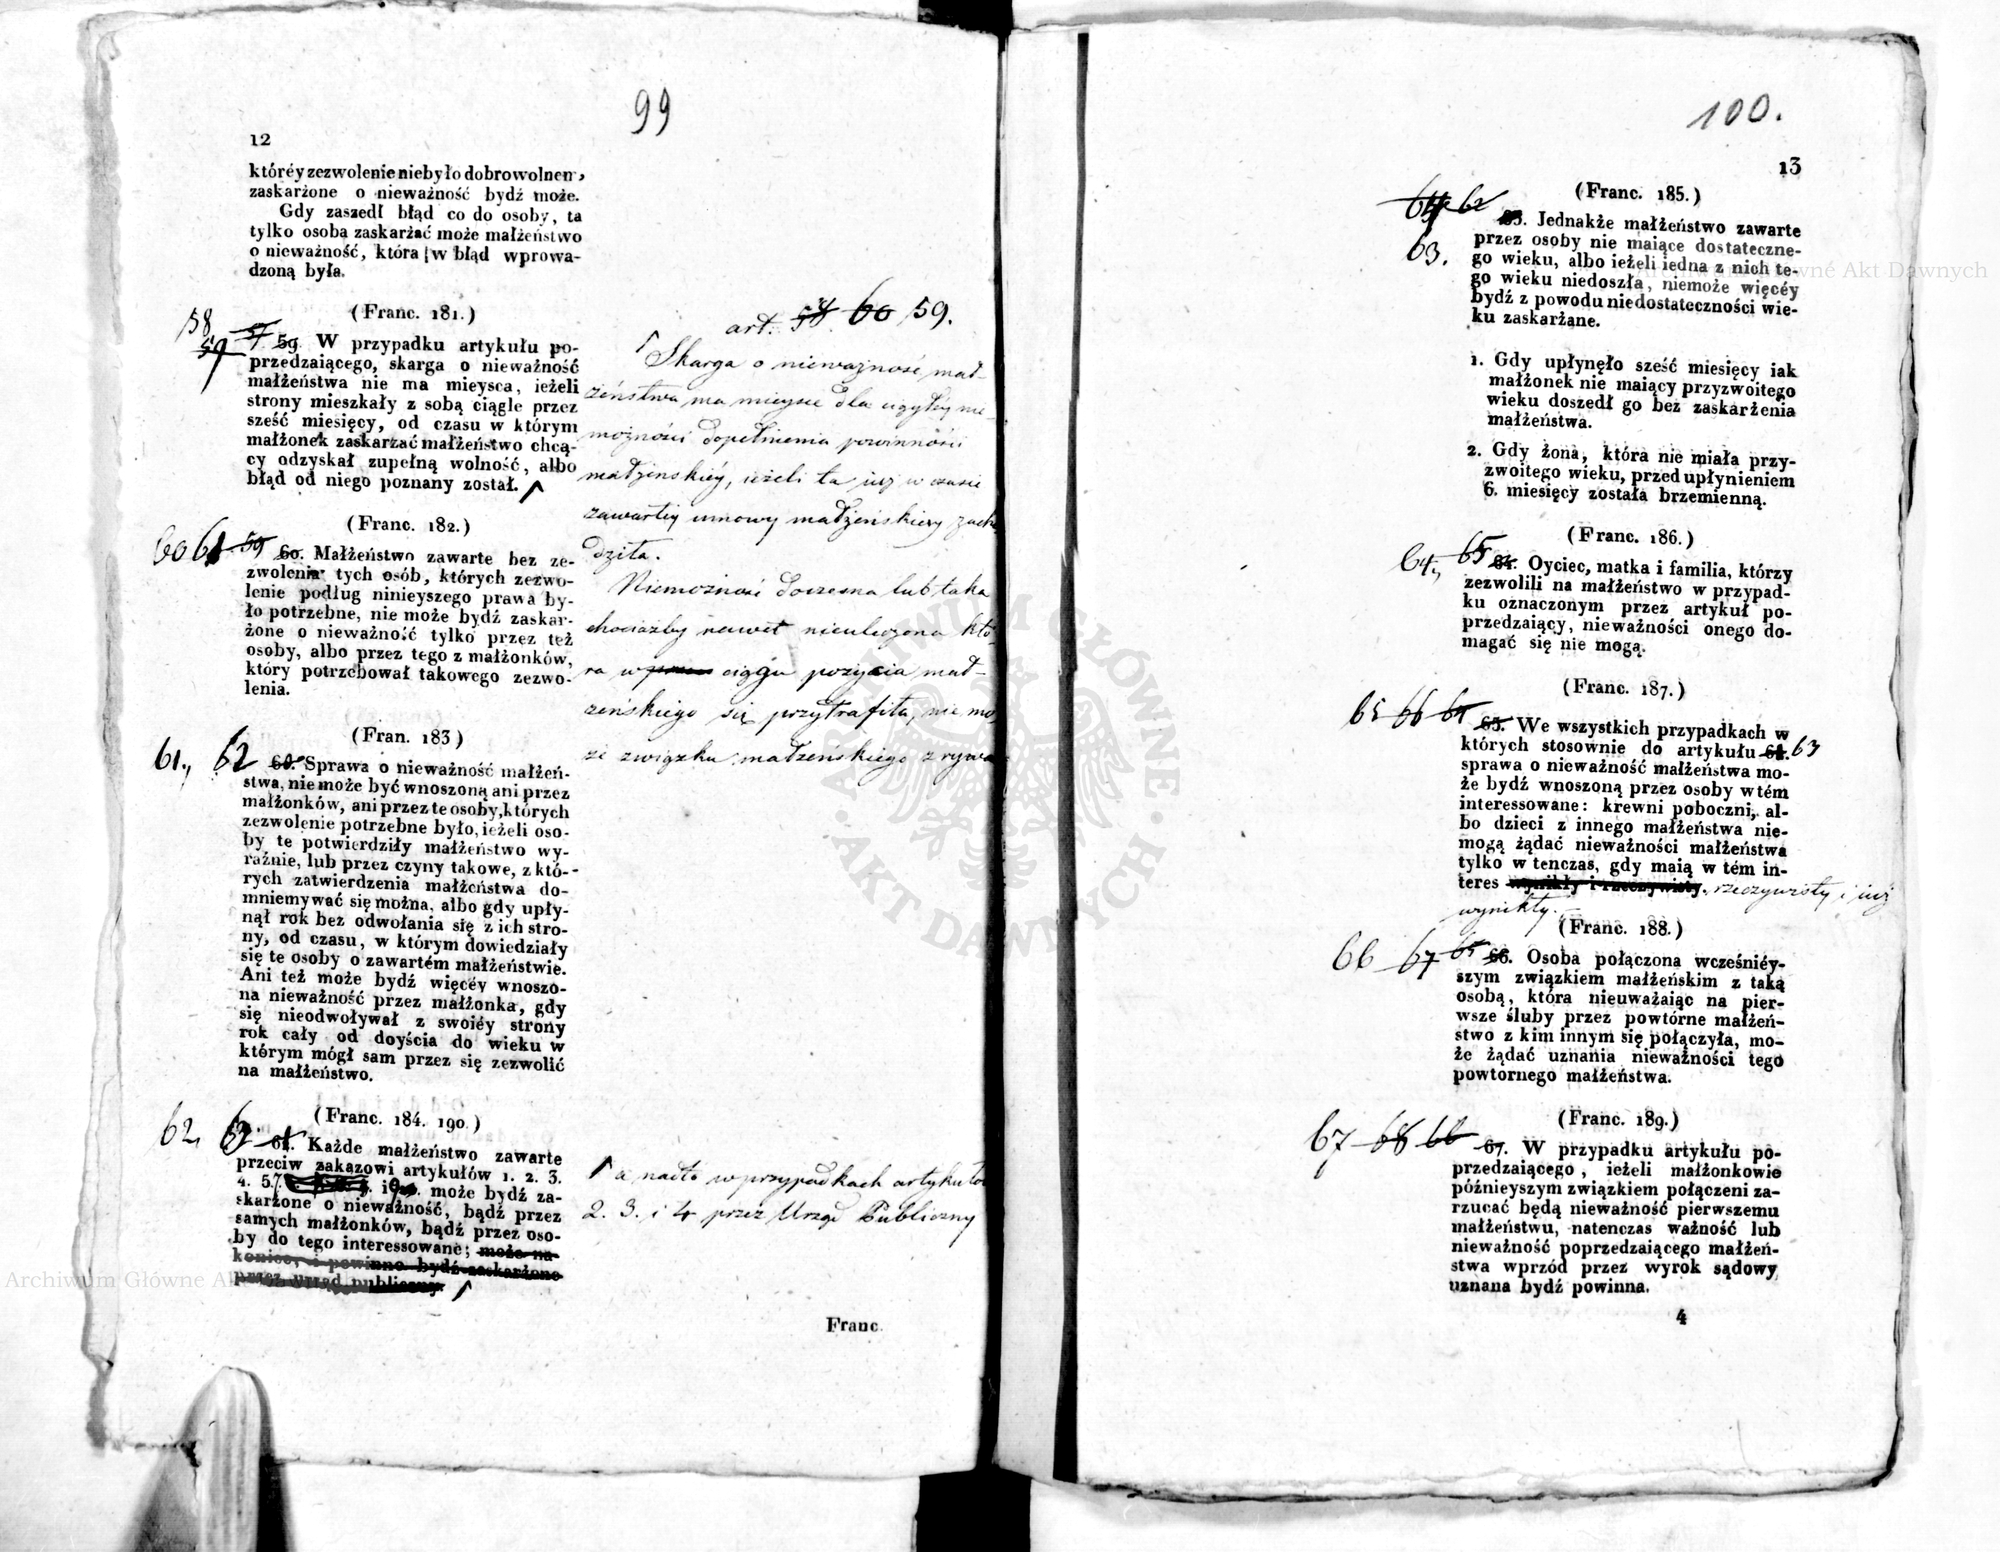 99
12
któréy zezwolenie niebyło dobrowolnen,
zaskarżone o nieważność bydź może.
Gdy zaszedł błąd co do osoby, ta
tylko osoba zaskarżać może małżeństwo
o nieważność, która w błąd wprowa-
dzoną była.
(Franc. 181.)
58
59 57 59. W przypadku artykułu po-
przedzaiącego, skarga o nieważność
małżeństwa nie ma mieysca, ieżeli
strony mieszkały z sobą ciągle przez
sześć miesięcy, od czasu w którym
małżonek zaskarżać małżeństwo chcą-
cy odzyskał zupełną wolność, albo
błąd od niego poznany został.
(Franc. 182.)
60 61 59 60. Małżeństwo zawarte bez ze-
zwolenia tych osób, których zezwo-
lenie podług ninieyszego prawa by-
ło potrzebne, nie może bydź zaskar-
żone o nieważność tylko przez też
osoby, albo przez tego z małżonków,
który potrzebował takowego zezwo-
lenia.
(Fran. 183)
61., 62 60. Sprawa o nieważność małżeń-
stwa, nie może być wnoszoną ani przez
małżonków, ani przez te osoby, których
zezwolenie potrzebne było, ieżeli oso-
by te potwierdziły małżeństwo wy-
raźnie, lub przez czyny takowe, z któ-
rych zatwierdzenia małżeństwa do-
mniemywać się można, albo gdy upły-
nął rok bez odwołania się z ich stro-
ny, od czasu, w którym dowiedziały
się te osoby o zawartém małżeństwie.
Ani też może bydź więcéy wnoszo-
na nieważność przez małżonka, gdy
się nieodwoływał z swoiéy strony
rok cały od doyścia do wieku w
którym mógł sam przez się zezwolić
na małżeństwo.
(Franc. 184. 190.)
62, 63 61. Każde małżeństwo zawarte
przeciw zakazowi artykułów 1. 2. 3.
4. 5. 7. i może bydź za-
skarżone o nieważność, bądź przez
samych małżonków, bądź przez oso-
by do tego interessowane; może na
koniec, i powinno bydź zaskarżone
przez urząd publiczny.
art. 58 60 59.
Skarga o nieważność mał-
żeństwa ma mieysce dla ciągłey nie
możności dopełnienia powinności
małżenskiéy, ieżeli ta iuż w czasie
zawartey umowy małżeńskiey zacho
dziła.
Niemożność doczesna lub taka
chociażby nawet nieuleczona któ
ra w ciągu pożycia mał-
żeńskiego się przytrafiła, nie mo
że związku małżeńskiego zrywa
a nadto w przypadkach artykułów
2. 3. i 4 przez Urząd Publiczny
Franc.
100.
13
(Franc. 185.)
64 62 63. Jednakże małżeństwo zawarte
63. przez osoby nie maiące dostateczne-
go wieku, albo ieżeli iedna z nich te-
go wieku niedoszła, niemoże więcéy
bydź z powodu niedostateczności wie-
ku zaskarżane.
1. Gdy upłynęło sześć miesięcy iak
małżonek nie maiący przyzwoitego
wieku doszedł go bez zaskarżenia
małżeństwa.
2. Gdy żona, która nie miała przy-
zwoitego wieku, przed upłynieniem
6. miesięcy została brzemienną.
(Franc. 186.)
64., 65 64. Oyciec, matka i familia, którzy
zezwolili na małżeństwo w przypad-
ku oznaczonym przez artykuł po-
przedzaiący, nieważności onego do-
magać się nie mogą.
(Franc. 187.)
65 66 64 65. We wszystkich przypadkach w
których stosownie do artykułu 61. 63
sprawa o nieważność małżeństwa mo-
że bydź wnoszoną przez osoby w tém
interessowane: krewni poboczni, al-
bo dzieci z innego małżeństwa nie-
mogą żądać nieważności małżeństwa
tylko w tenczas, gdy maią w tém in-
teres wynikły i rzeczywisty. rzeczywisty i iuż
wynikły.
(Franc. 188.)
66 67 65 66. Osoba połączona wcześniéy-
szym związkiem małżeńskim z taką
osobą, która nieuważaiąc na pier-
wsze śluby przez powtórne małżeń-
stwo z kim innym się połączyła, mo-
że żądać uznania nieważności tego
powtornego małżeństwa.
(Franc. 189.)
67 68 66 67. W przypadku artykułu po-
przedzaiącego, ieżeli małżonkowie
późnieyszym związkiem połączeni za-
rzucać będą nieważność pierwszemu
małżeństwu, natenczas ważność lub
nieważność poprzedzaiącego małżeń-
stwa wprzód przez wyrok sądowy
uznana bydź powinna.
4
Archiwum Główne Akt Dawnych
ARCHIWUM GŁÓWNE AKT DAWNYCH